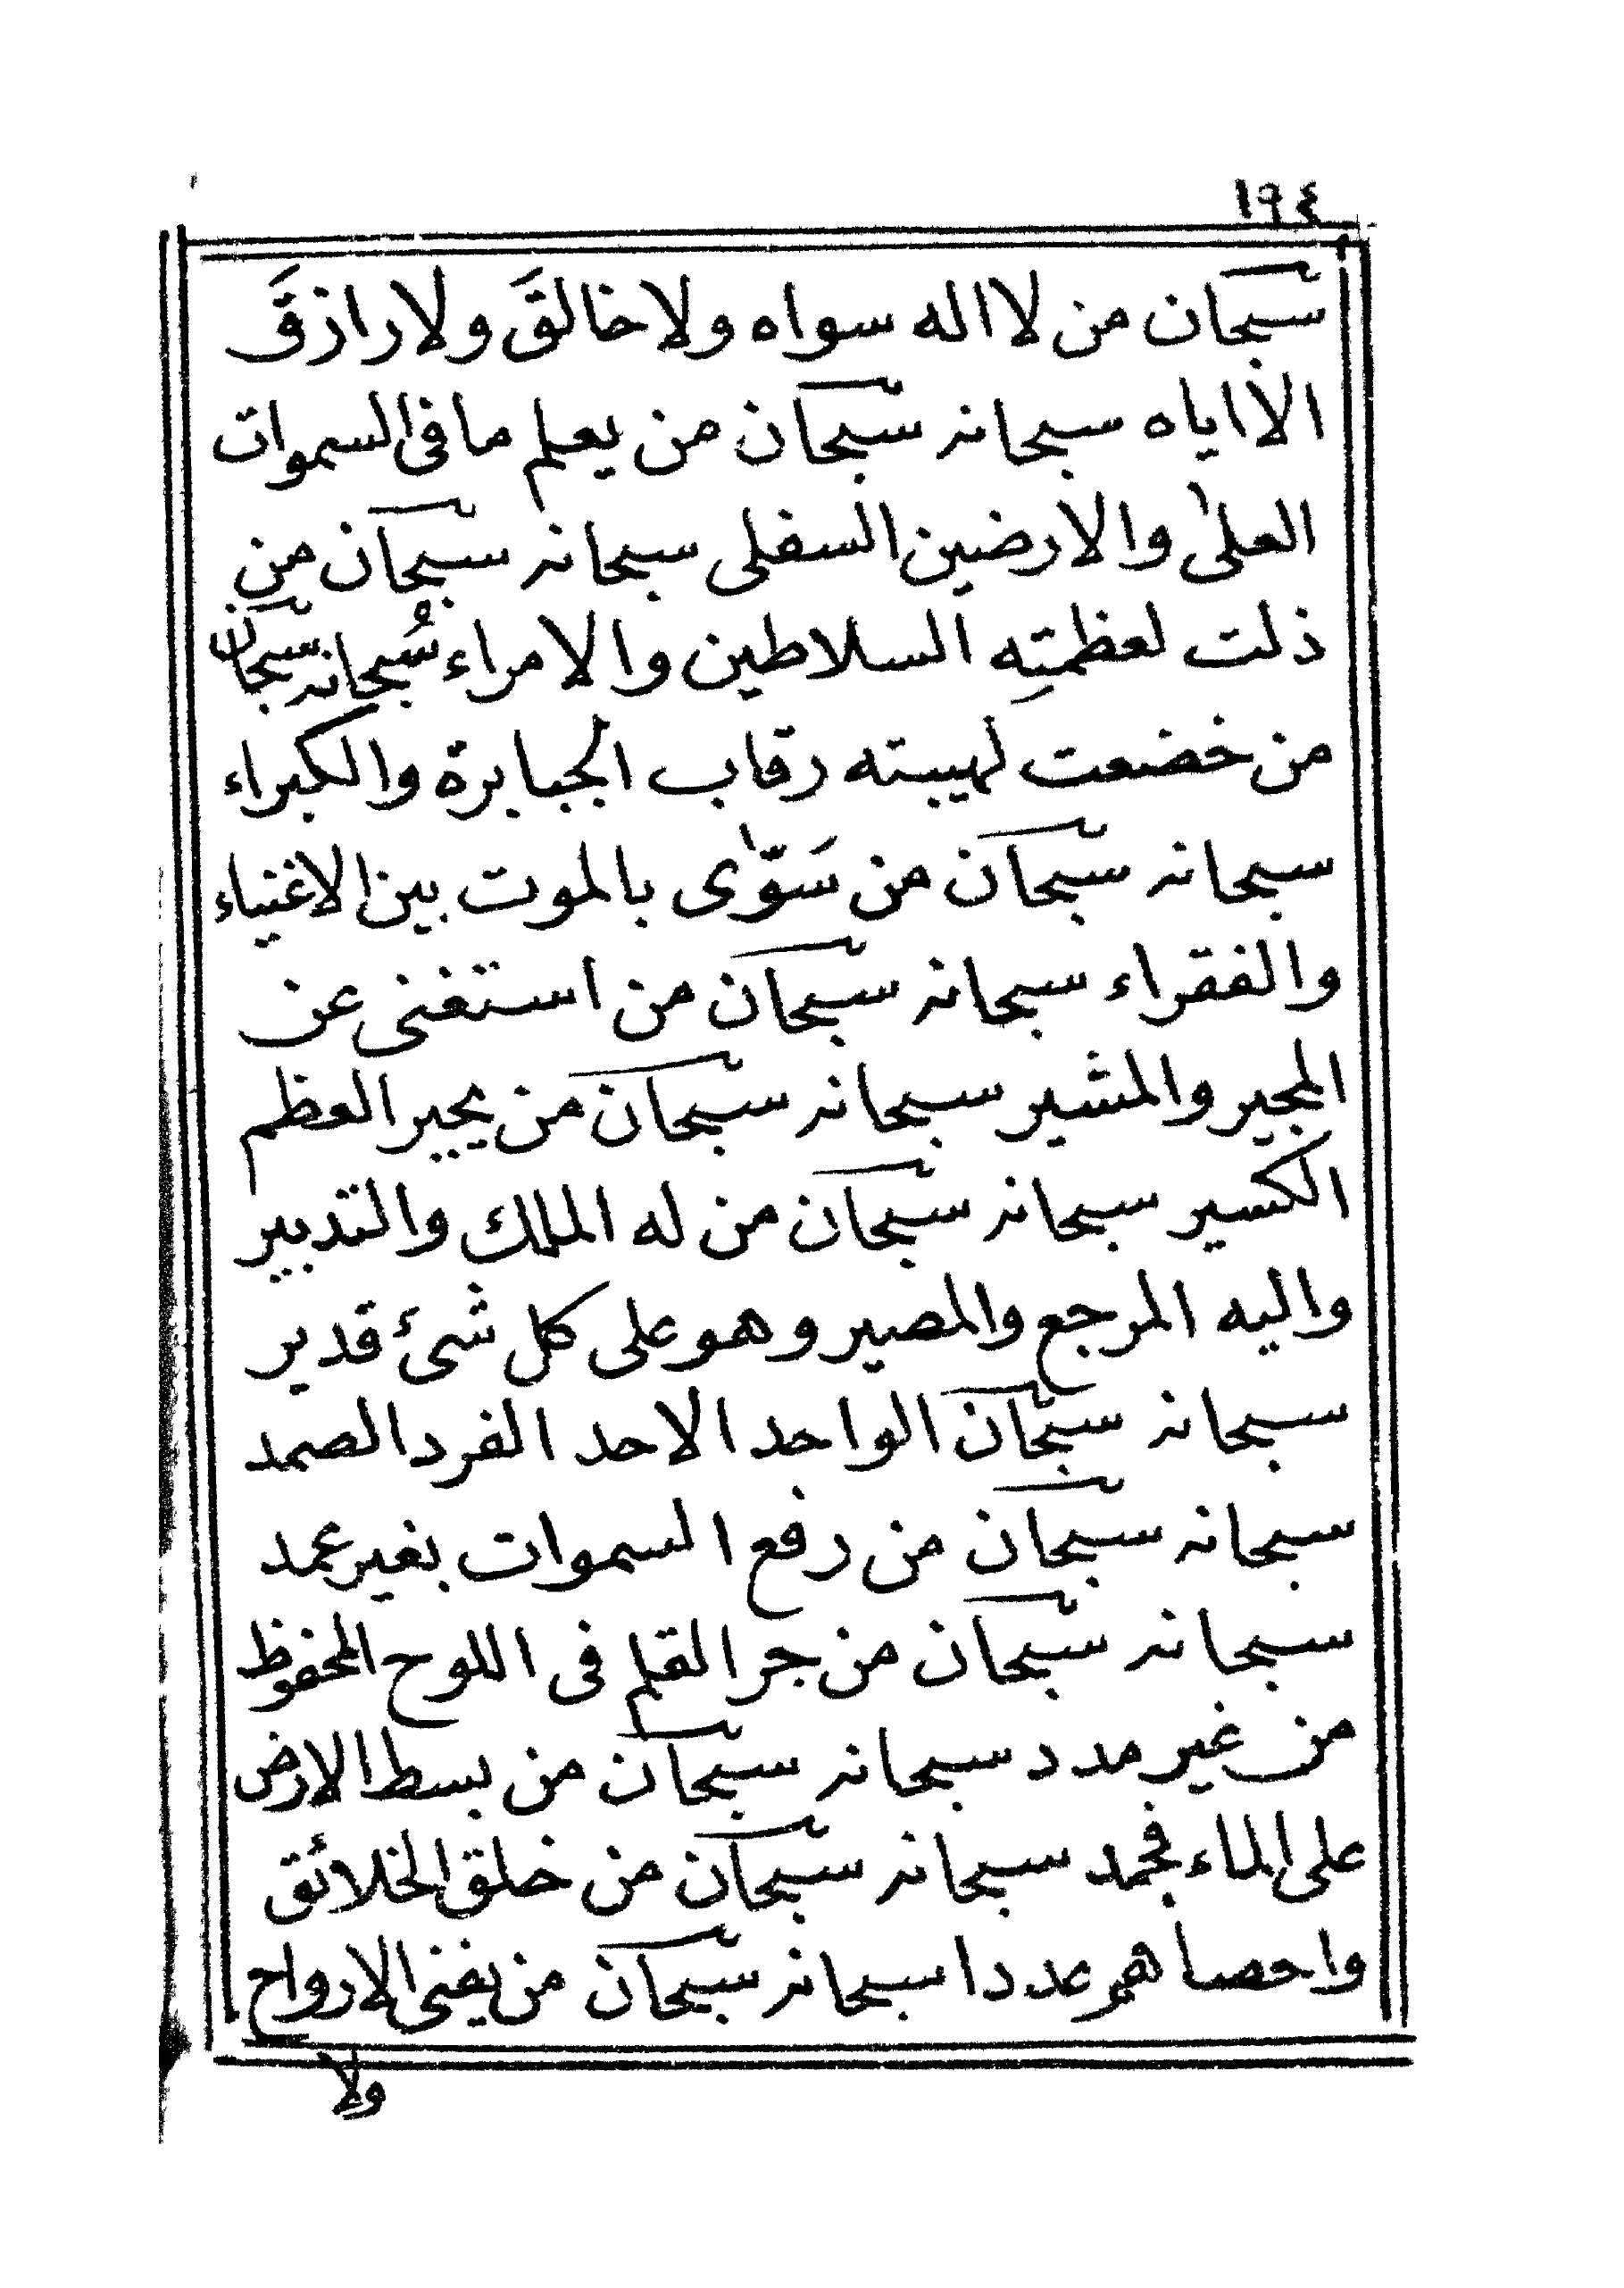 ١٩٤
سبحان من لا اله سواه ولا خالقَ ولا رازقَ
الا اياه سبحانه سبحان من يعلم ما فى السموات
العلىٰ والارضين السفلى سبحانه سبحان من
ذلت لعظمتِه السلاطين والامراء سُبحانه سبحان
من خضعت لهيبته رقاب الجبابرة والكبراء
سبحانه سبحان من سَوّٰى بالموت بين الاغنياء
والفقراء سبحانه سبحان من استغنى عن
المجير والمشير سبحانه سبحان من يجير العظم
الكسير سبحانه سبحان من له الملك والتدبير
واليه المرجع والمصير وهو على كل شئ قدير
سبحانه سبحان الواحد الاحد الفرد الصمد
سبحانه سبحان من رفع السموات بغير عمد
سبحانه سبحان من جر القلم فى اللوح المحفوظ
من غير مدد سبحانه سبحان من بسط الارض
على الماء فجمد سبحانه سبحان من خلق الخلائق
واحصاهم عددا سبحانه سبحان من يفنى الارواح
ولا